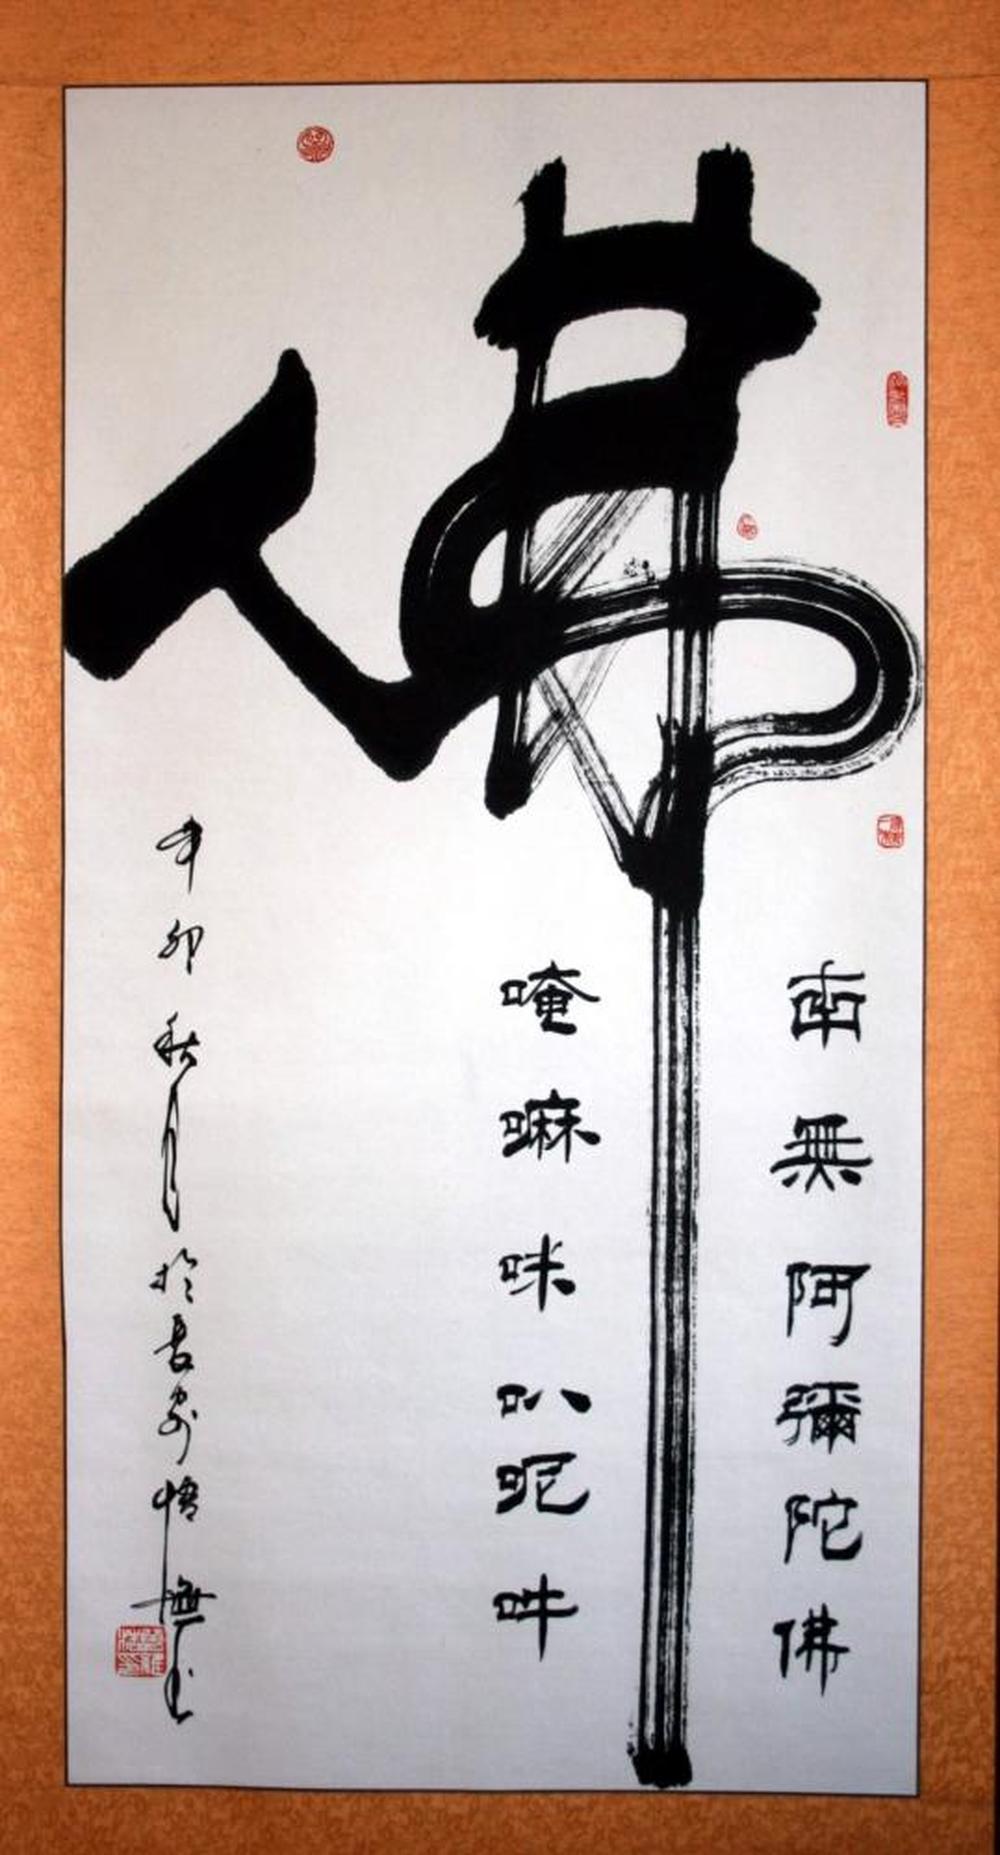 佛
南無阿彌陀佛
唵嘛咪叭呢吽
辛卯秋月於長安悟無书